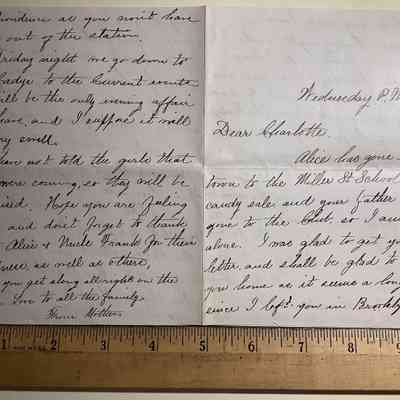 Providence as you won't have
out of the station.
Friday night we go down to
Gadys to the Current events
will be the only evening affair
have, and I suppose it will
very small.
have not told the girls that
were coming, so they will be
Hope you are feeling
and don't forget to thank
Alice & Uncle Frank for their
as well as others,
you get along all right on the
Love to all the family
From Mother
Wednesday P.M
Dear Charlotte.
Alice has gone
town to the Miller St School
candy sale and your Father
gone to the Club, so I am
alone. I was glad to get yo
letter, and shall be glad to
you home as it seems a lon
since I left you in Brookly
1 2 3 4 5 6 7 8 9